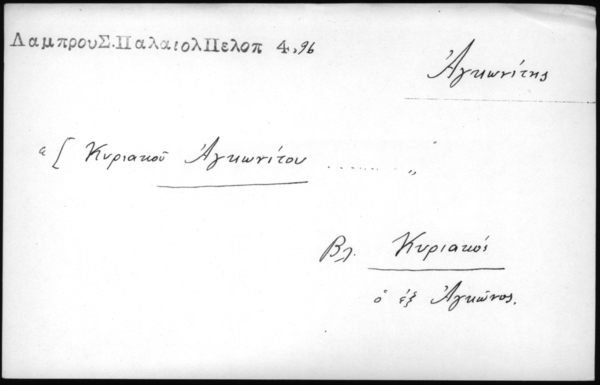 ΛαμπρουΣ.ΠαλαιολΠελοπ 4,96
Ἀγκωνίτης
"[Κυριακοῦ Ἀγκωνίτου ........ "
Βλ. Κυριακός
ὁ ἐξ Ἀγκῶνος.